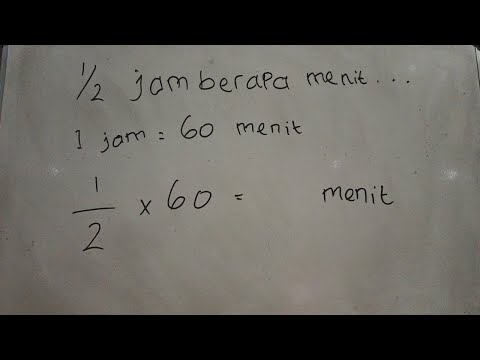 1/2 jam berapa menit...
1 jam = 60 menit
1/2 x 60 = menit